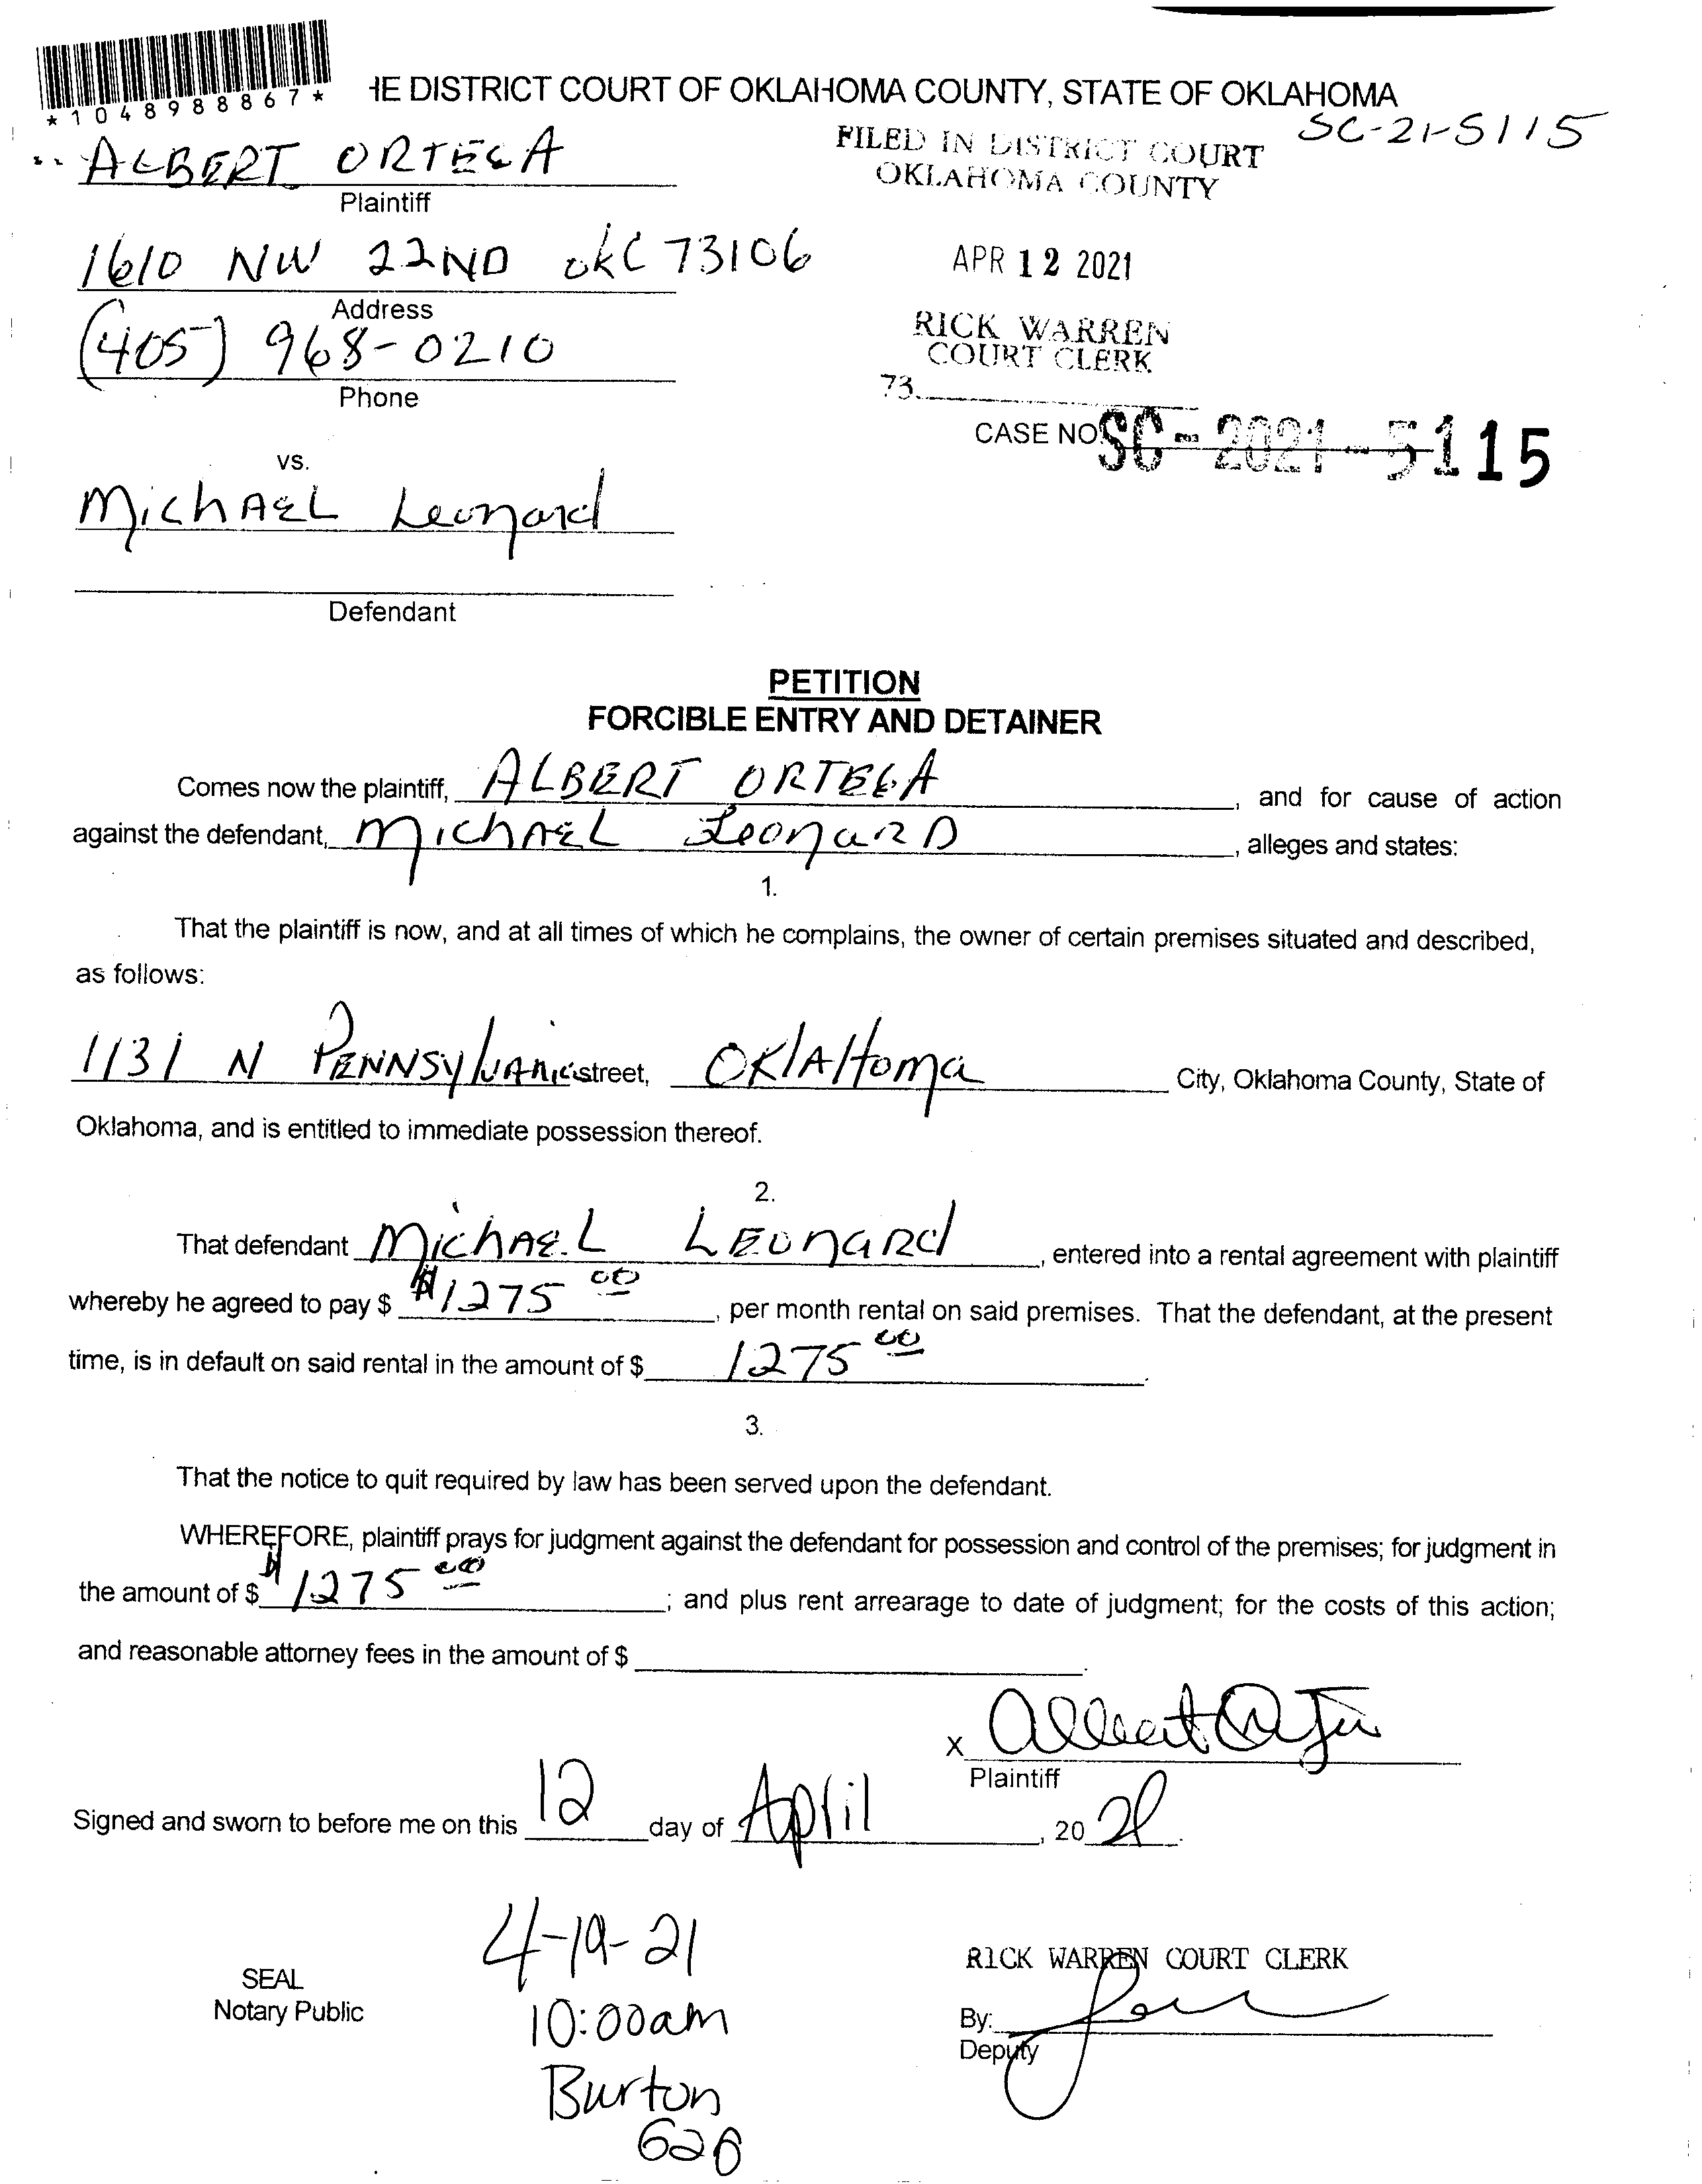 *1048988867*
HE DISTRICT COURT OF OKLAHOMA COUNTY, STATE OF OKLAHOMA
SC-21-5115
ALBERT ORTEGA
Plaintiff
FILED IN DISTRICT COURT
OKLAHOMA COUNTY
1610 NW 22ND OKC 73106
Address
APR 12 2021
(405) 968-0210
Phone
RICK WARREN
COURT CLERK
73
CASE NO SC-2021-5115
vs.
MichAEL Leonard
Defendant
PETITION
FORCIBLE ENTRY AND DETAINER
Comes now the plaintiff, ALBERT ORTEGA, and for cause of action
against the defendant, MichAEL LeonarD, alleges and states:
1.
That the plaintiff is now, and at all times of which he complains, the owner of certain premises situated and described,
as follows:
1131 N PENNSylvAnia street, OKlAHoma City, Oklahoma County, State of
Oklahoma, and is entitled to immediate possession thereof.
2.
That defendant MichAEL LEonaRd, entered into a rental agreement with plaintiff
whereby he agreed to pay $ $1275 00, per month rental on said premises. That the defendant, at the present
time, is in default on said rental in the amount of $ 1275 00.
3.
That the notice to quit required by law has been served upon the defendant.
WHEREFORE, plaintiff prays for judgment against the defendant for possession and control of the premises; for judgment in
the amount of $ $1275 00; and plus rent arrearage to date of judgment; for the costs of this action;
and reasonable attorney fees in the amount of $ .
x
Plaintiff
Signed and sworn to before me on this 12 day of April, 2021.
4-19-21
10:00am
Burton
SEAL
Notary Public
RICK WARREN COURT CLERK
By:
Deputy